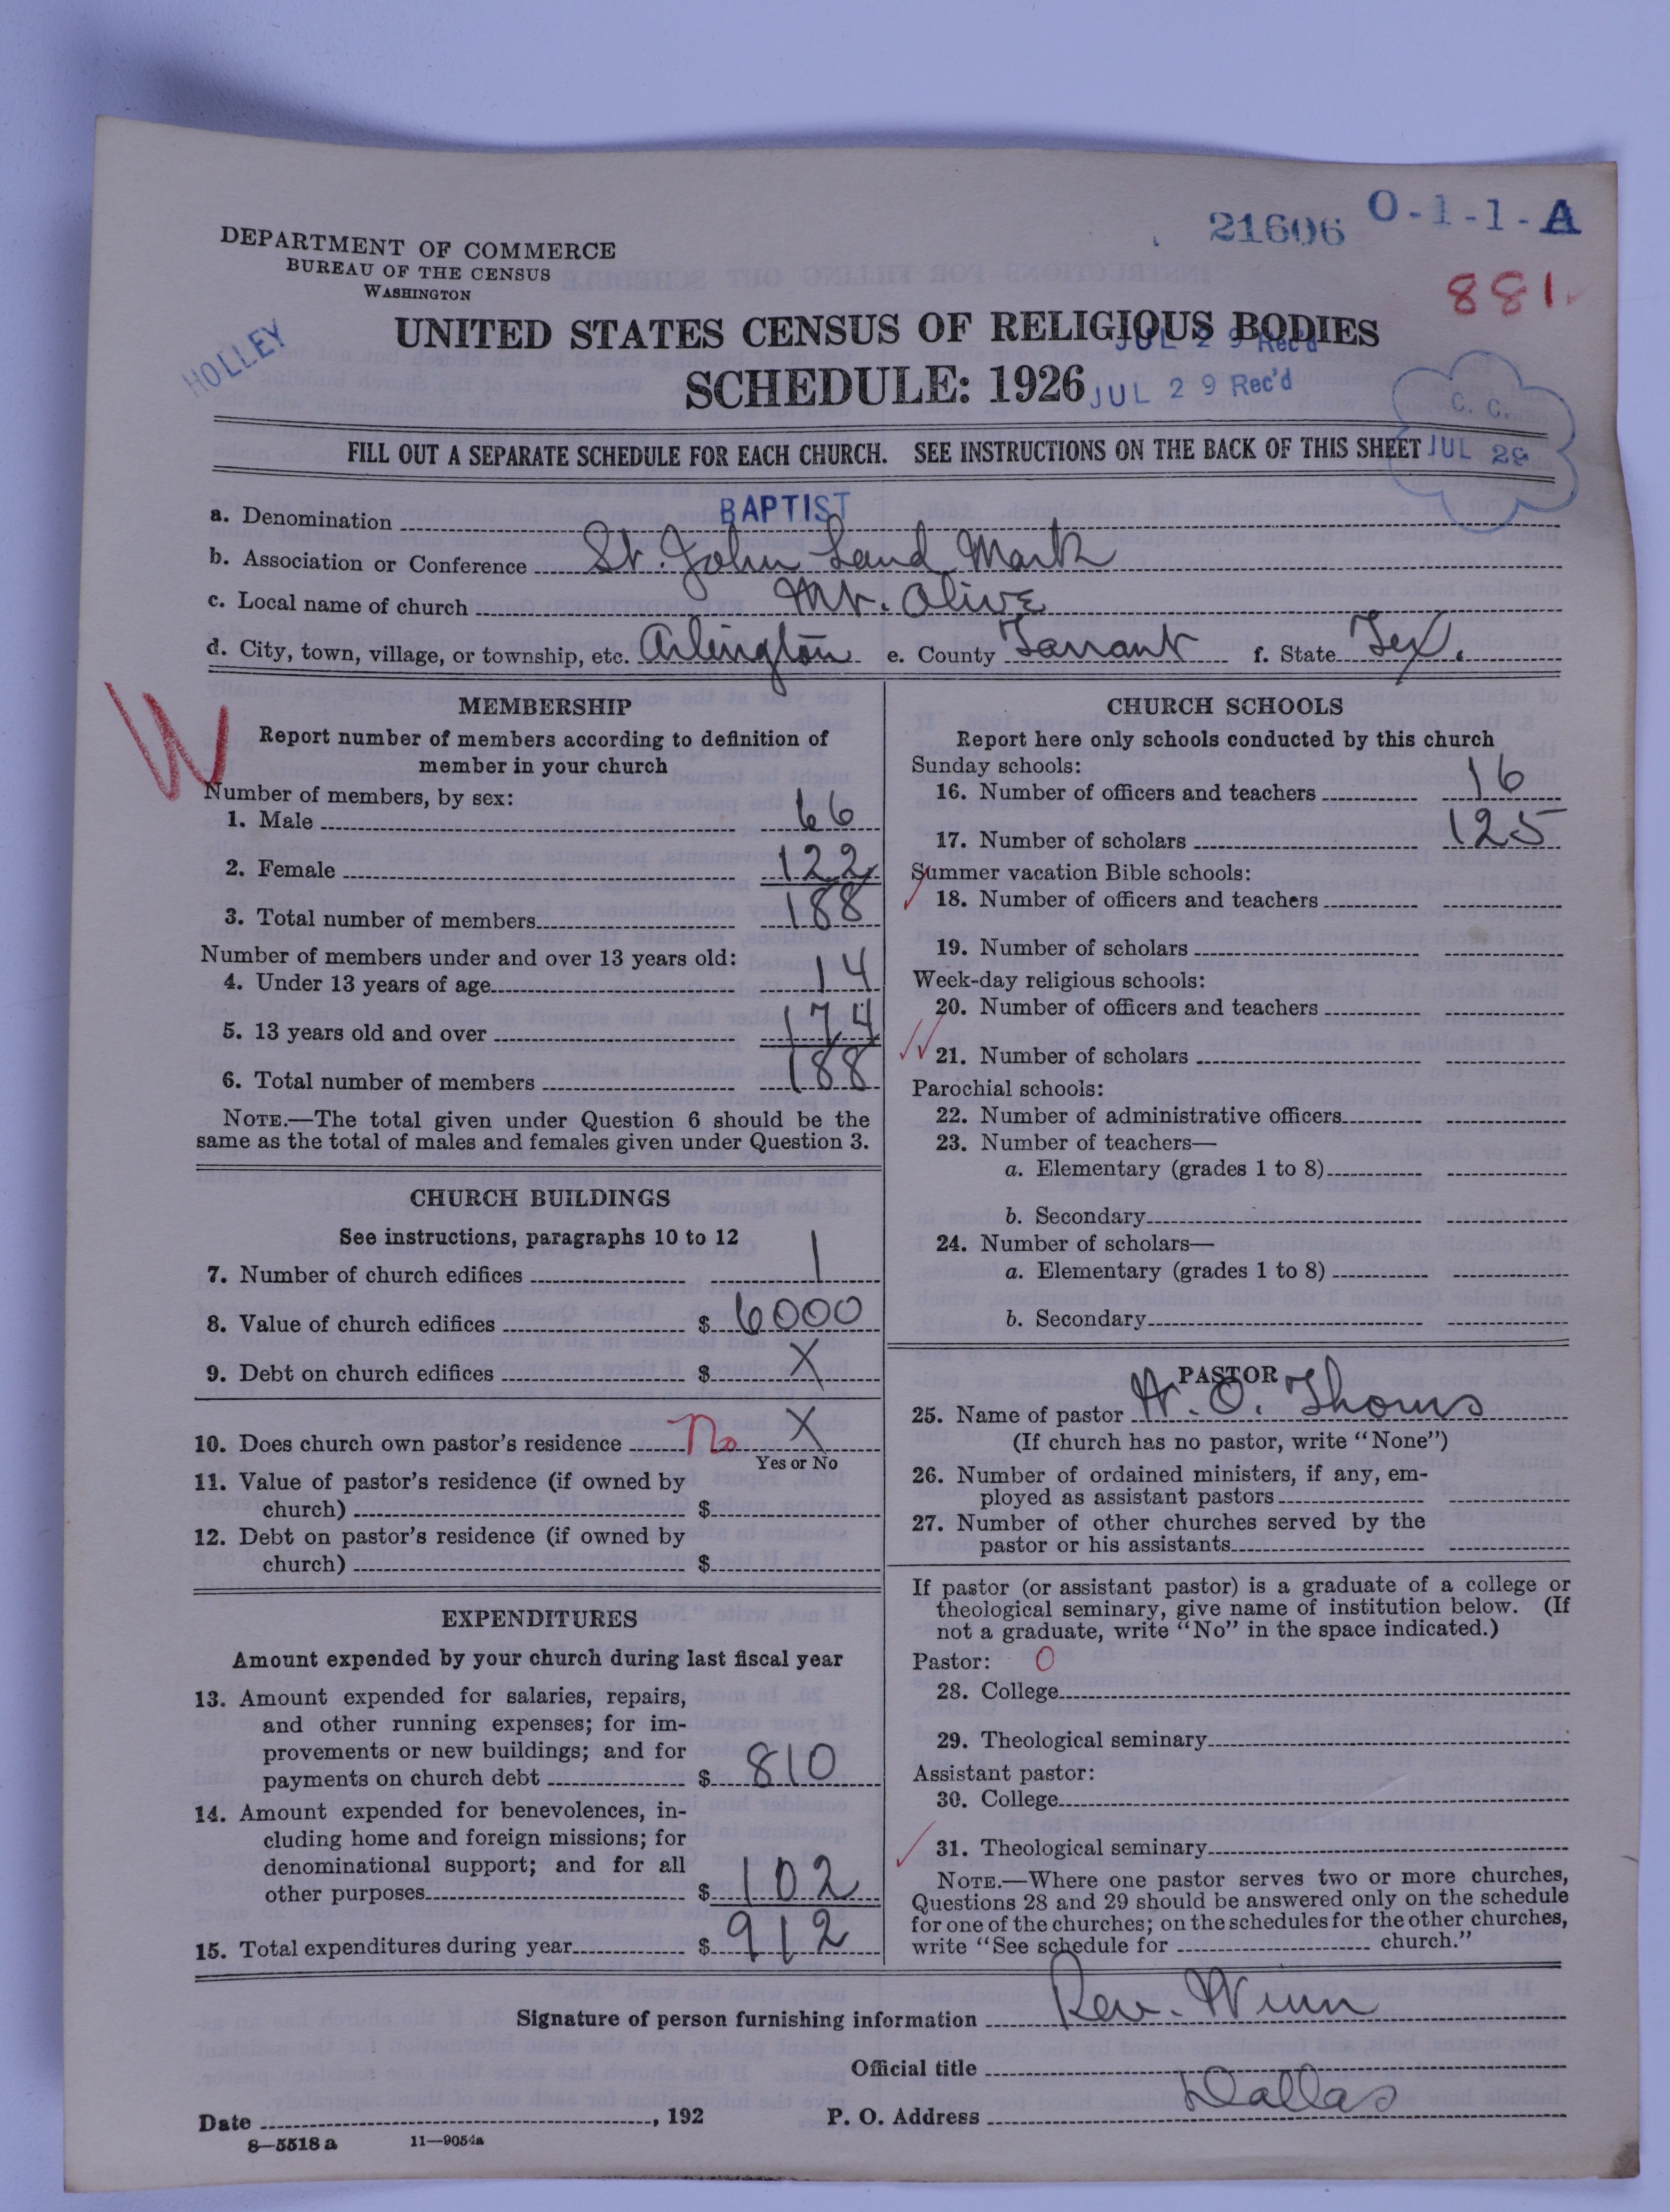 21606 O-1-1-A
881
DEPARTMENT OF COMMERCE
BUREAU OF THE CENSUS
WASHINGTON
HOLLEY
UNITED STATES CENSUS OF RELIGIOUS BODIES
JUL 29 Rec'd
SCHEDULE: 1926
JUL 29 Rec'd
C. C.
JUL 29
FILL OUT A SEPARATE SCHEDULE FOR EACH CHURCH. SEE INSTRUCTIONS ON THE BACK OF THIS SHEET
a. Denomination BAPTIST
b. Association or Conference St. John Land Mark
c. Local name of church Mt. Olive
d. City, town, village, or township, etc. Arlington e. County Tarrant f. State Tex.
W
MEMBERSHIP
Report number of members according to definition of
member in your church
Number of members, by sex:
1. Male 66
2. Female 122
3. Total number of members 188
Number of members under and over 13 years old:
4. Under 13 years of age 14
5. 13 years old and over 174
6. Total number of members 188
NOTE.—The total given under Question 6 should be the
same as the total of males and females given under Question 3.
CHURCH BUILDINGS
See instructions, paragraphs 10 to 12
7. Number of church edifices 1
8. Value of church edifices $ 6000
9. Debt on church edifices $ X
10. Does church own pastor's residence No X
Yes or No
11. Value of pastor's residence (if owned by
church) $
12. Debt on pastor's residence (if owned by
church) $
EXPENDITURES
Amount expended by your church during last fiscal year
13. Amount expended for salaries, repairs,
and other running expenses; for im-
provements or new buildings; and for
payments on church debt $ 810
14. Amount expended for benevolences, in-
cluding home and foreign missions; for
denominational support; and for all
other purposes $ 102
15. Total expenditures during year $ 912
CHURCH SCHOOLS
Report here only schools conducted by this church
Sunday schools:
16. Number of officers and teachers 16
17. Number of scholars 125
Summer vacation Bible schools:
18. Number of officers and teachers
19. Number of scholars
Week-day religious schools:
20. Number of officers and teachers
21. Number of scholars
Parochial schools:
22. Number of administrative officers
23. Number of teachers—
a. Elementary (grades 1 to 8)
b. Secondary
24. Number of scholars—
a. Elementary (grades 1 to 8)
b. Secondary
PASTOR
25. Name of pastor W. O. Thoms
(If church has no pastor, write "None")
26. Number of ordained ministers, if any, em-
ployed as assistant pastors
27. Number of other churches served by the
pastor or his assistants
If pastor (or assistant pastor) is a graduate of a college or
theological seminary, give name of institution below. (If
not a graduate, write "No" in the space indicated.)
Pastor: 0
28. College
29. Theological seminary
Assistant pastor:
30. College
31. Theological seminary
NOTE.—Where one pastor serves two or more churches,
Questions 28 and 29 should be answered only on the schedule
for one of the churches; on the schedules for the other churches,
write "See schedule for church."
Signature of person furnishing information Rev. Winn
Official title
Date , 192 P. O. Address Dallas
8—5518 a 11—9054a